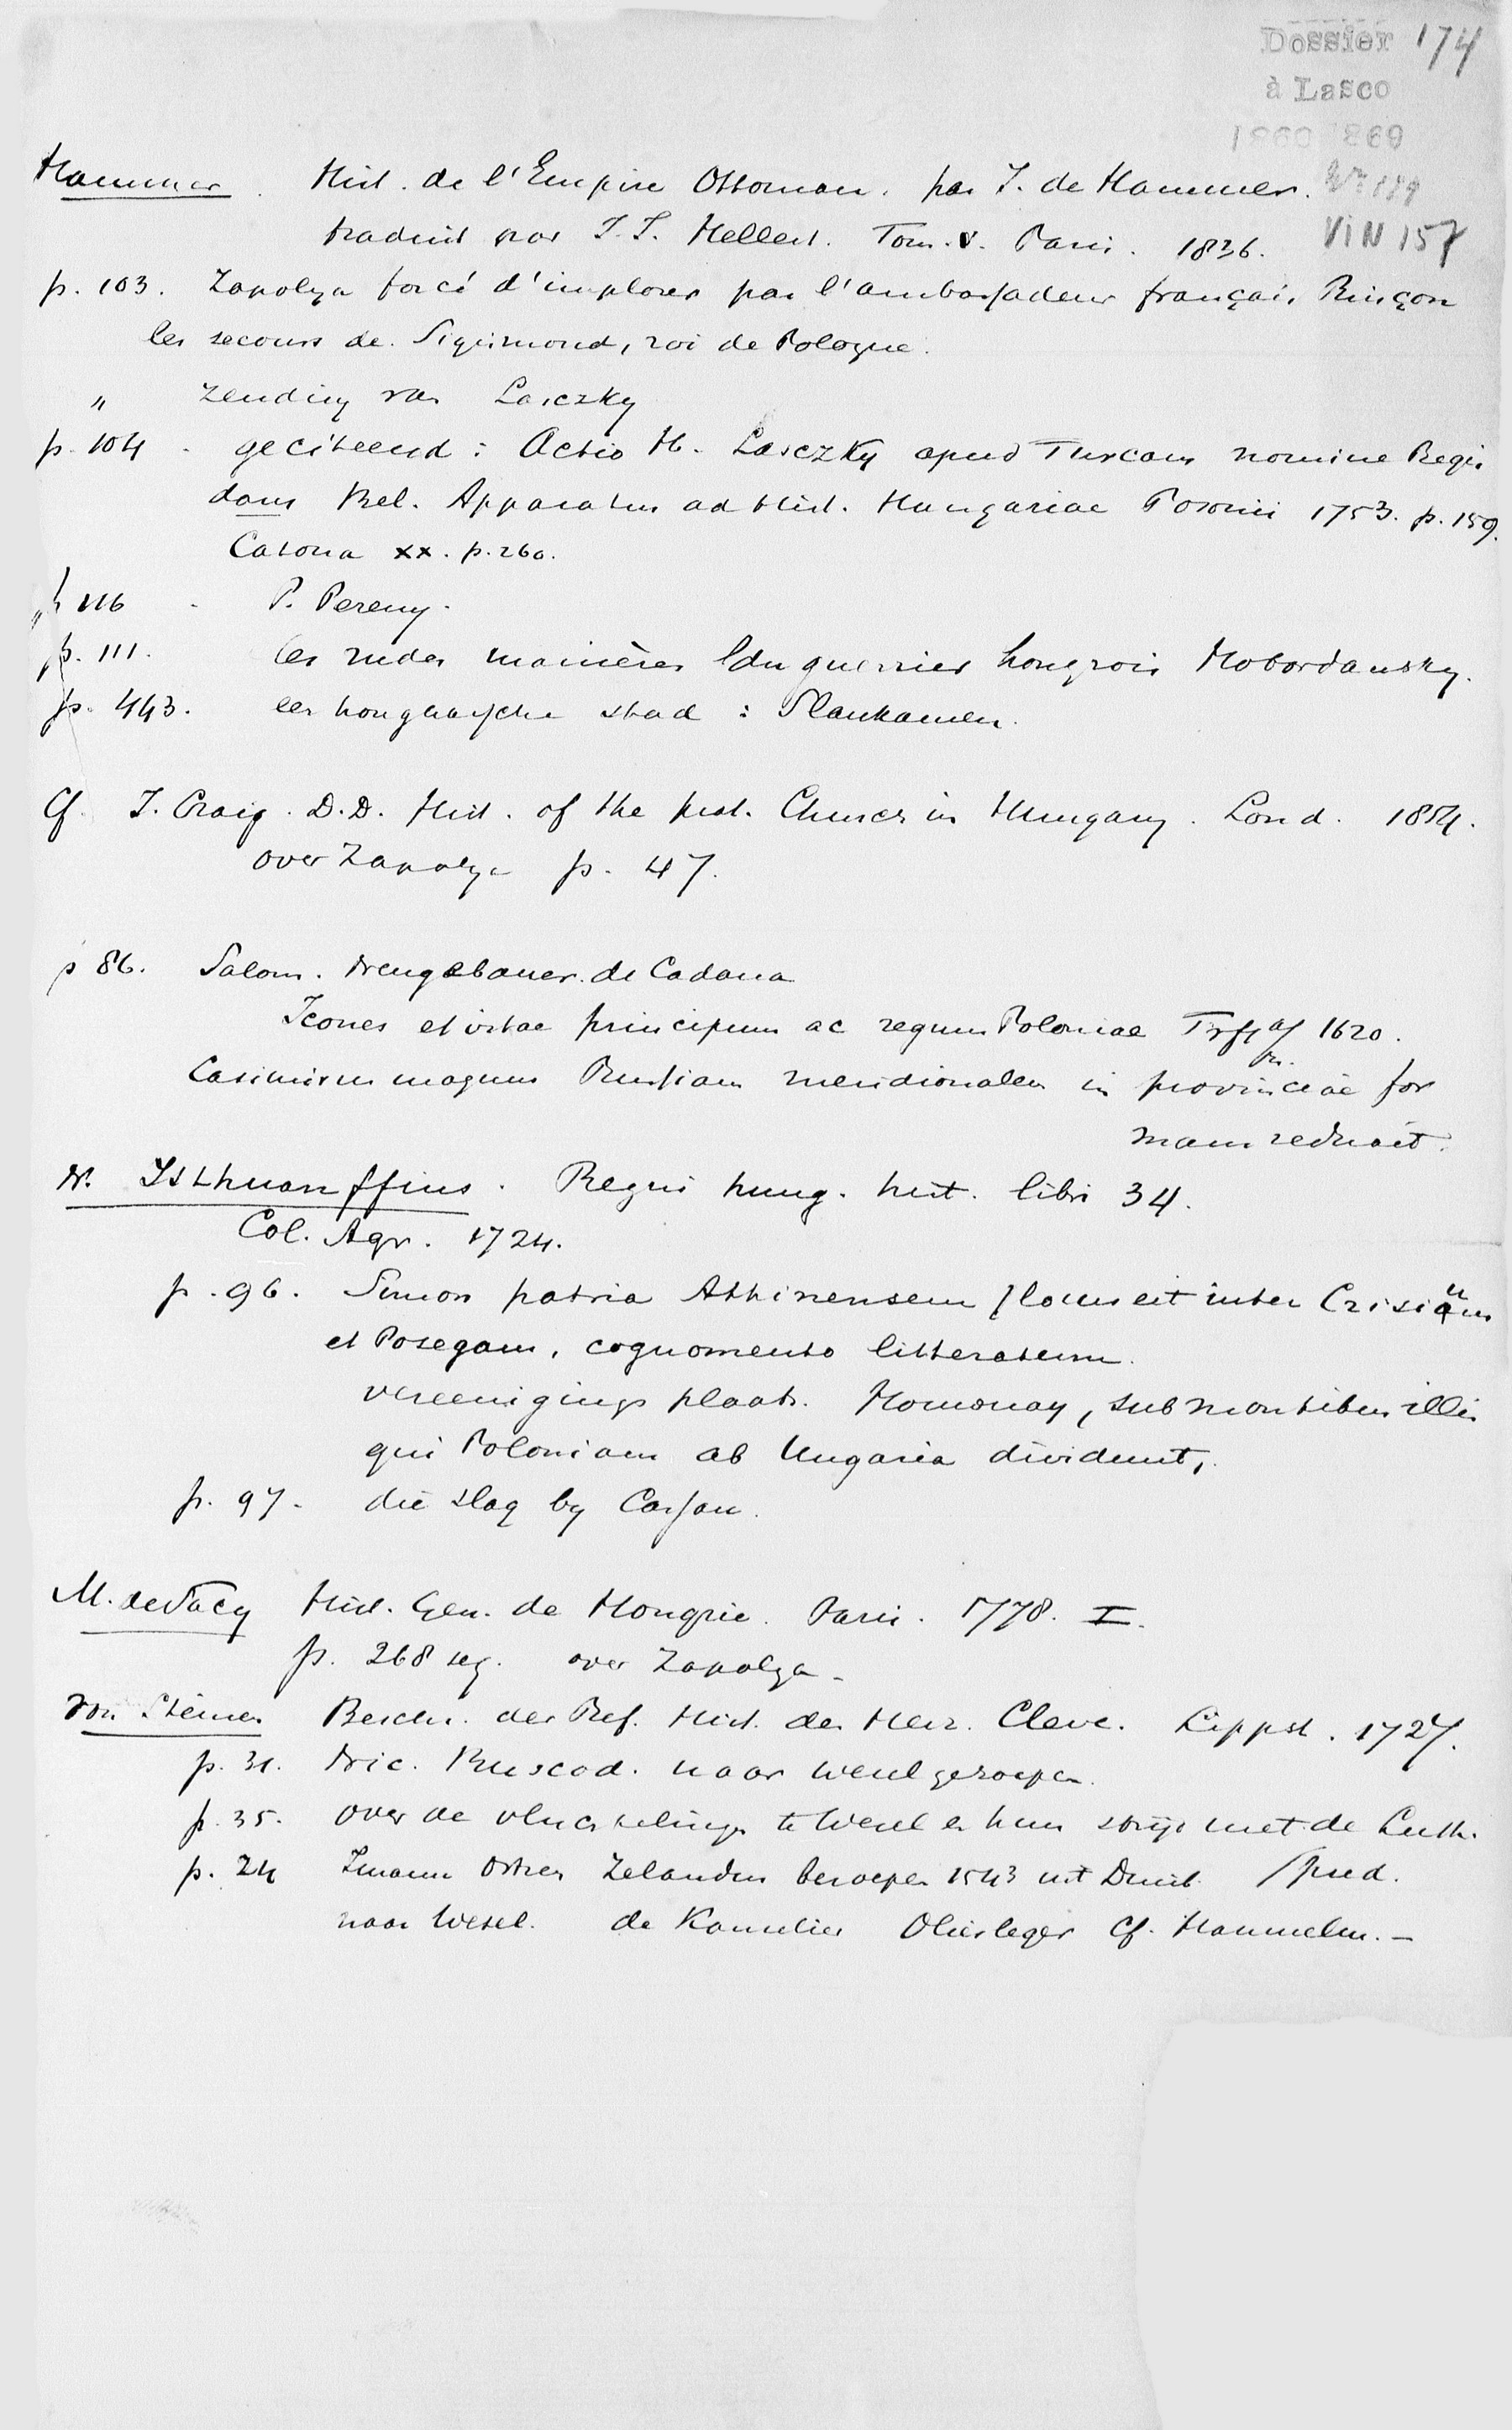 Dossier 174
à Lasco
1860 1869
VIN 157
Hammer. Hist. de l'Empire Ottoman. par J. de Hammer.
traduit par J. J. Hellert. Tom. V. Paris. 1836.
p. 103. Zapolya forcé d'implorer par l'ambassadeur français Rinçon
les secours de Sigismond, roi de Pologne.
" zending van Lasczky
p. 104. geciteerd: Actio H. Lasczky apud Turcam nomine Regis
dans Bel. Apparatus ad Hist. Hungariae Posonii 1753. p. 159.
Catona xx. p. 260.
p 116 - P. Pereny.
p. 111. les rudes manières du guerrier hongrois Hobordansky.
p. 443. een hongaarsche stad: Slankamen.
Cf. J. Craig. D.D. Hist. of the prot. Church in Hungary. Lond. 1854.
over Zapolya p. 47.
p 86. Salom. Neugebauer de Cadana
Icones et vitae principum ac regum Poloniae 1620.
Casimirus magnus Russiam meridionalem in provinciae for
mam reduxit.
N. Isthuanffius. Regni hung. hist. libri 34.
Col. Agr. 1724.
p. 96. Simon patria Athinensem (locus est inter Crisium
et Posegam, cognomento litteratum.
vereenigings plaats. Homonay, sub montibus illis
qui Poloniam ab Ungaria dividunt,
p. 97. die slag by Cassau.
M. de Sacy Hist. Gen. de Hongrie. Paris. 1778. I.
p. 268 seq. over Zapolya -
von Steinen Beschr. der Ref. Hist. der Herz. Cleve. Lippst. 1727.
p. 31. Nic. Buscod. naar Wesel geroepen.
p. 35. over de vluchtelingen te Wesel en hun strijd met de Luth.
p. 24 Imann Zelandus beroepen 1543 uit Duisb. / pred.
naar Wesel. de Kanselier Olisleger Cf. Hammelm. -